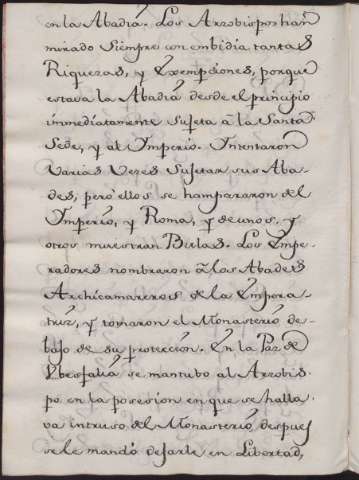 en la Abadiá. Los Arzobispos han
mirado Siempre con embidia tantas
Riquezas, y Exempciones, porque
estava la Abadiá desde el principio
immediátamente Sujeta à la Santa
Sede, y al Imperio. Intentaron
Varias Vezes Sujetar sus Aba-
des, peró ellos se hampararon del
Imperio, y Roma, y de unos, y
otros muestran Bulas. Los Empe-
radores nombraron à los Abades
Archicamareros de la Empora-
triz, y tomaron el Monasterio de-
bajo de su protección. En la Paz de
Vbesfaliá se mantubo al Arzobis-
po en la posesion en que se halla-
va intruso del Monasterio, despues
se le mandó dejarle en Libertad,